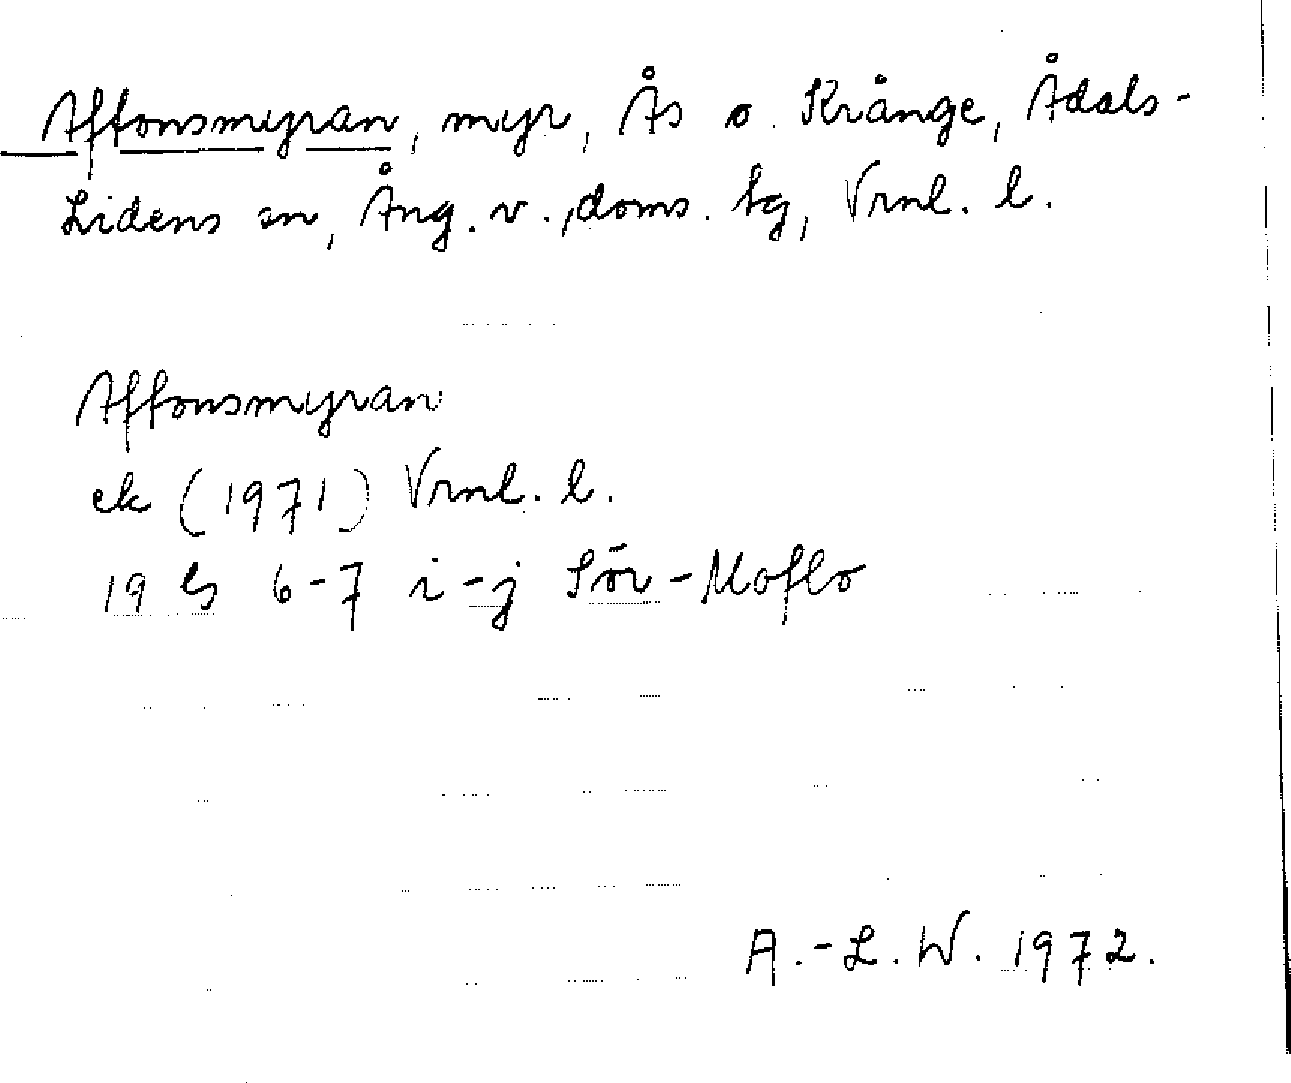 Affonsmyran, myr, Ås o. Krånge, Ådals-
Lidens sn, Ång. v., doms. tg, Vrnl. l.
Affonsmyran
ek (1971) Vrnl. l.
19 G 6-7 i-j Sör-Moflo
A.-L. W. 1972.